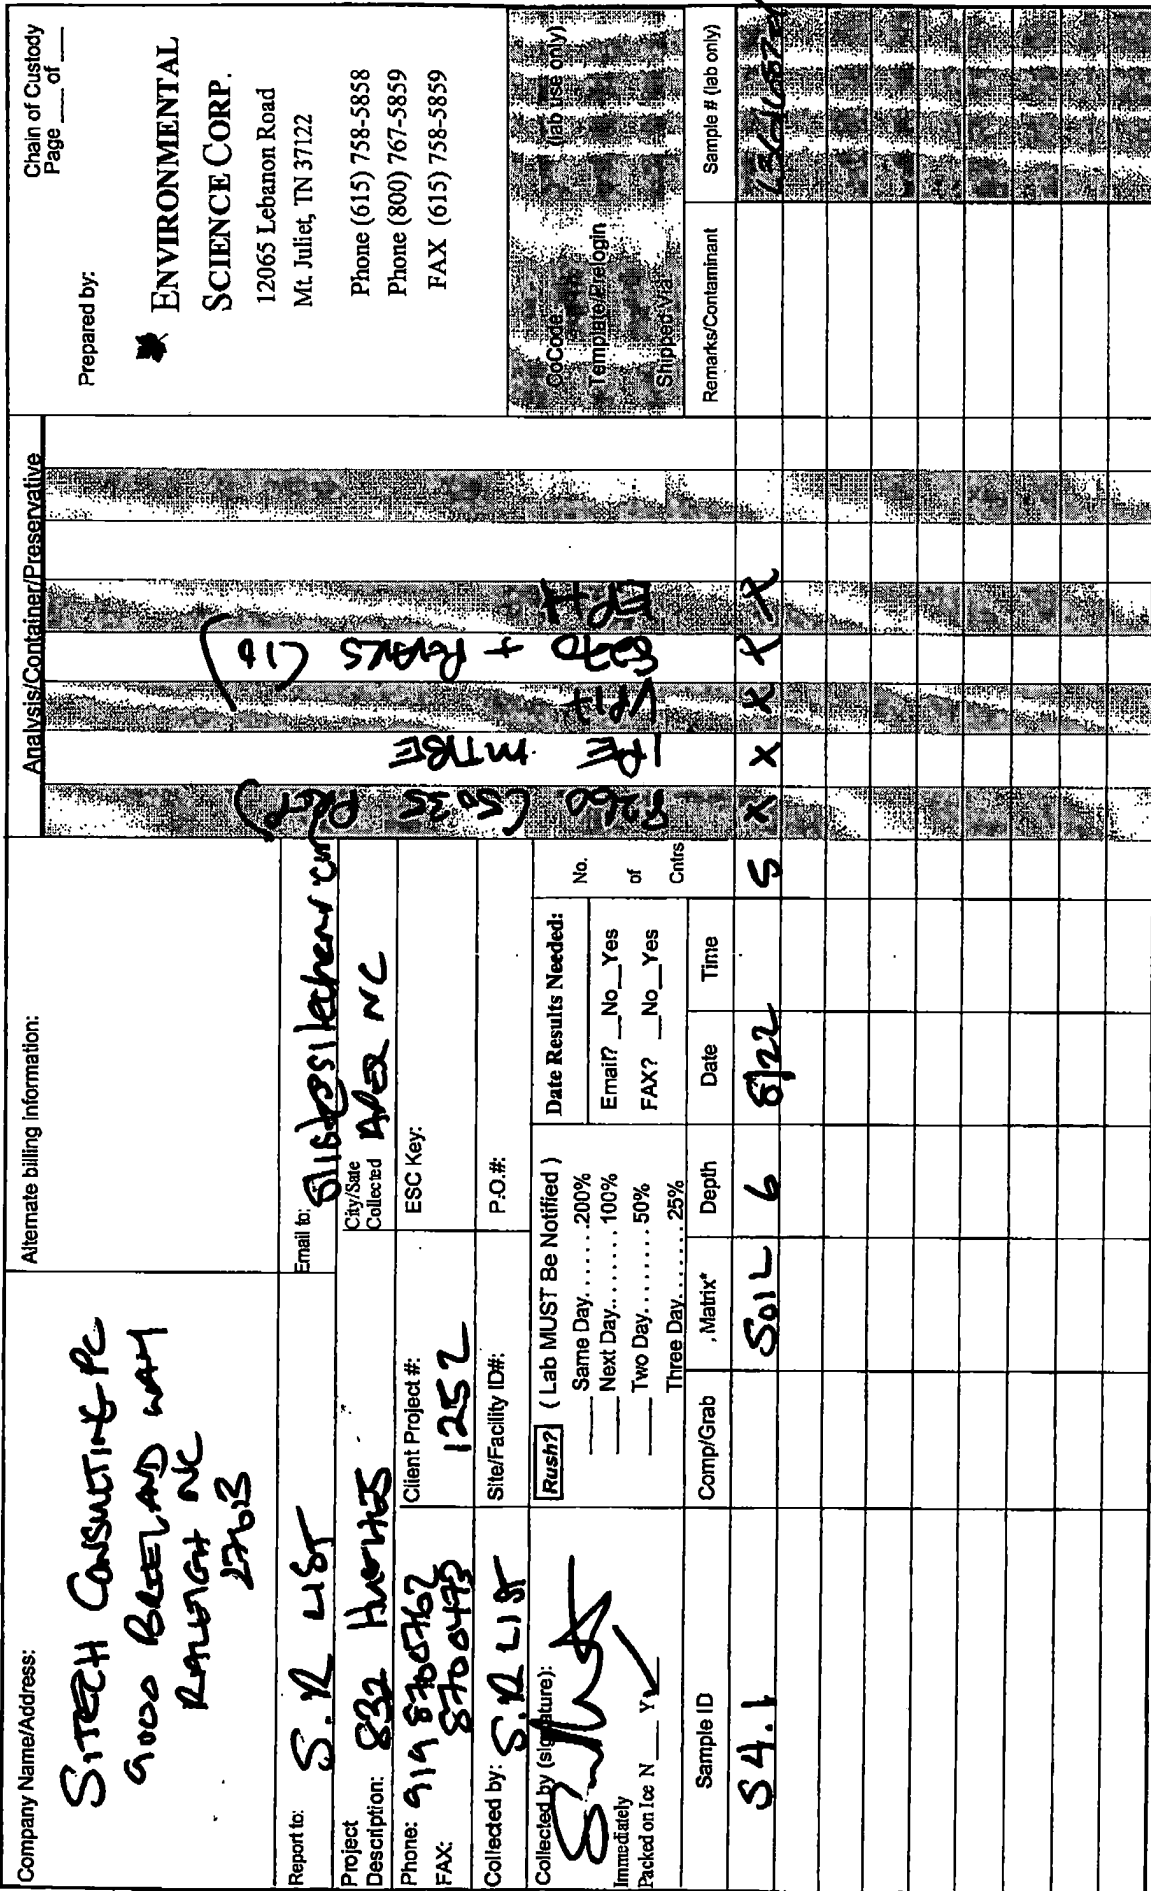 Company Name/Address:
SITECH CONSULTING PC
9000 BREELAND WAY
RALEIGH NC
27613
Alternate billing information:
Analysis/Container/Preservative
Chain of Custody
Page ___ of ___
Prepared by:
ENVIRONMENTAL
SCIENCE CORP.
12065 Lebanon Road
Mt. Juliet, TN 37122
Phone (615) 758-5858
Phone (800) 767-5859
FAX (615) 758-5859
Report to: S.R LIST
Email to:
Project
Description: 832 HUGHES
City/Sate
Collected APEX NC
Phone: 919 8700762
FAX: 8700473
Client Project #:
1252
ESC Key:
Collected by: S.R LIST
Site/Facility ID#:
P.O.#:
Collected by (signature):
Immediately
Packed on Ice N ___ Y ✓
Rush? ( Lab MUST Be Notified )
___ Same Day.......200%
___ Next Day........100%
___ Two Day........50%
Three Day.......25%
Date Results Needed:
Email? __No__Yes
FAX? __No__Yes
No.
of
Cntrs
8260 (5035 PREP)
IPE MTBE
VPH
8270 + PEAKS (10)
EPH
CoCode (lab use only)
Template/Prelogin
Shipped Via:
Sample ID
Comp/Grab
Matrix*
Depth
Date
Time
Remarks/Contaminant
Sample # (lab only)
S4.1 SOIL 6 8/22 5 X X X X X